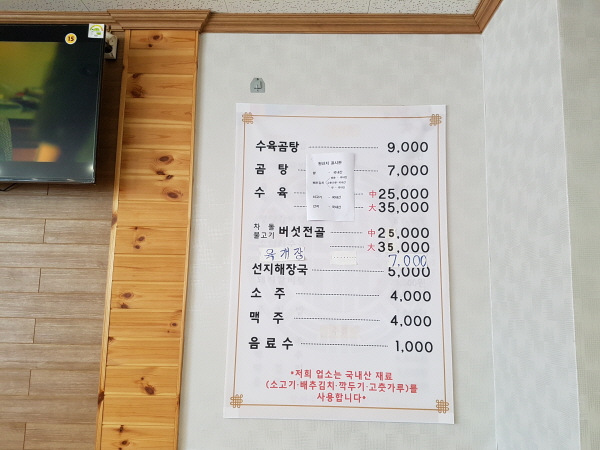 15
수육곰탕 9,000
곰탕 7,000
수육 中 25,000
大 35,000
차돌
불고기 버섯전골 中 25,000
大 35,000
육개장 7,000
선지해장국 5,000
소주 4,000
맥주 4,000
음료수 1,000
*저희 업소는 국내산 재료
(소고기·배추김치·깍두기·고춧가루)를
사용합니다*